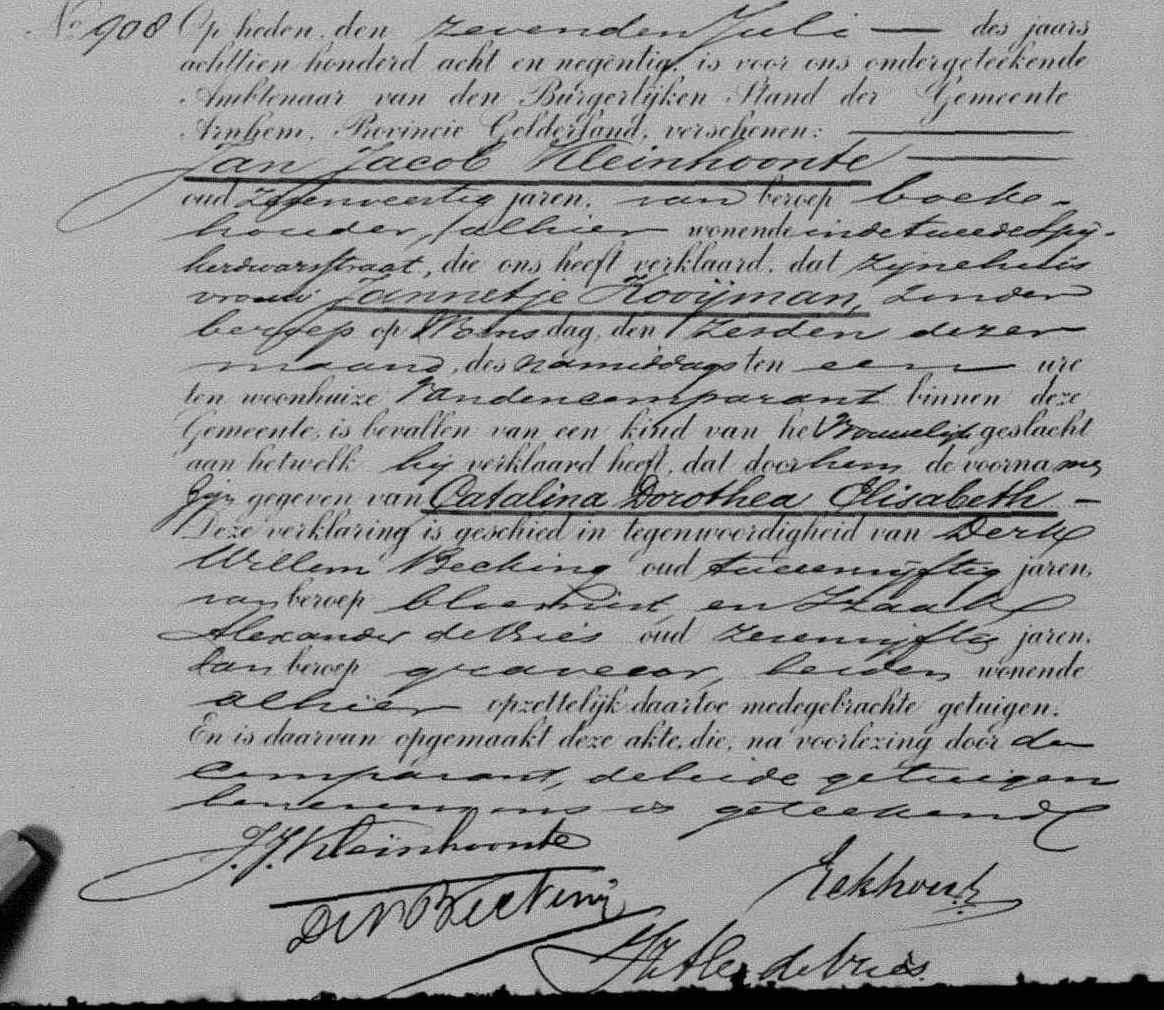 No 908 Op heden, den zevenden Juli — des jaars
achttien honderd acht en negentig, is voor ons ondergeteekende
Ambtenaar van den Burgerlijken Stand der Gemeente
Arnhem, Provincie Gelderland, verschenen:
Jan Jacob Kleinhoonte —
oud zevenveertig jaren, van beroep boek-
houder, alhier wonende in de tweede Spij-
kerdwarsstraat, die ons heeft verklaard, dat zijne huis
vrouw Jannetje Kooijman, zonder
beroep op Woensdag, den zesden dezer
maand, des namiddags ten een ure
ten woonhuize van den comparant binnen deze
Gemeente, is bevallen van een kind van het Vrouwelijk geslacht
aan hetwelk hij verklaard heeft, dat door hem de voornamen
zijn gegeven van Catalina Dorothea Elisabeth —
Deze verklaring is geschied in tegenwoordigheid van Derk
Willem Becking oud tweevijftig jaren,
van beroep bloemist, en Izaak
Alexander de Vries oud zesenvijftig jaren,
van beroep graveur, beiden wonende
alhier opzettelijk daartoe medegebrachte getuigen.
En is daarvan opgemaakt deze akte, die, na voorlezing door den
comparant, de beide getuigen
benevens ons is geteekend
J. J. Kleinhoonte
DW Becking
Eekhout
Iz Alex de Vries